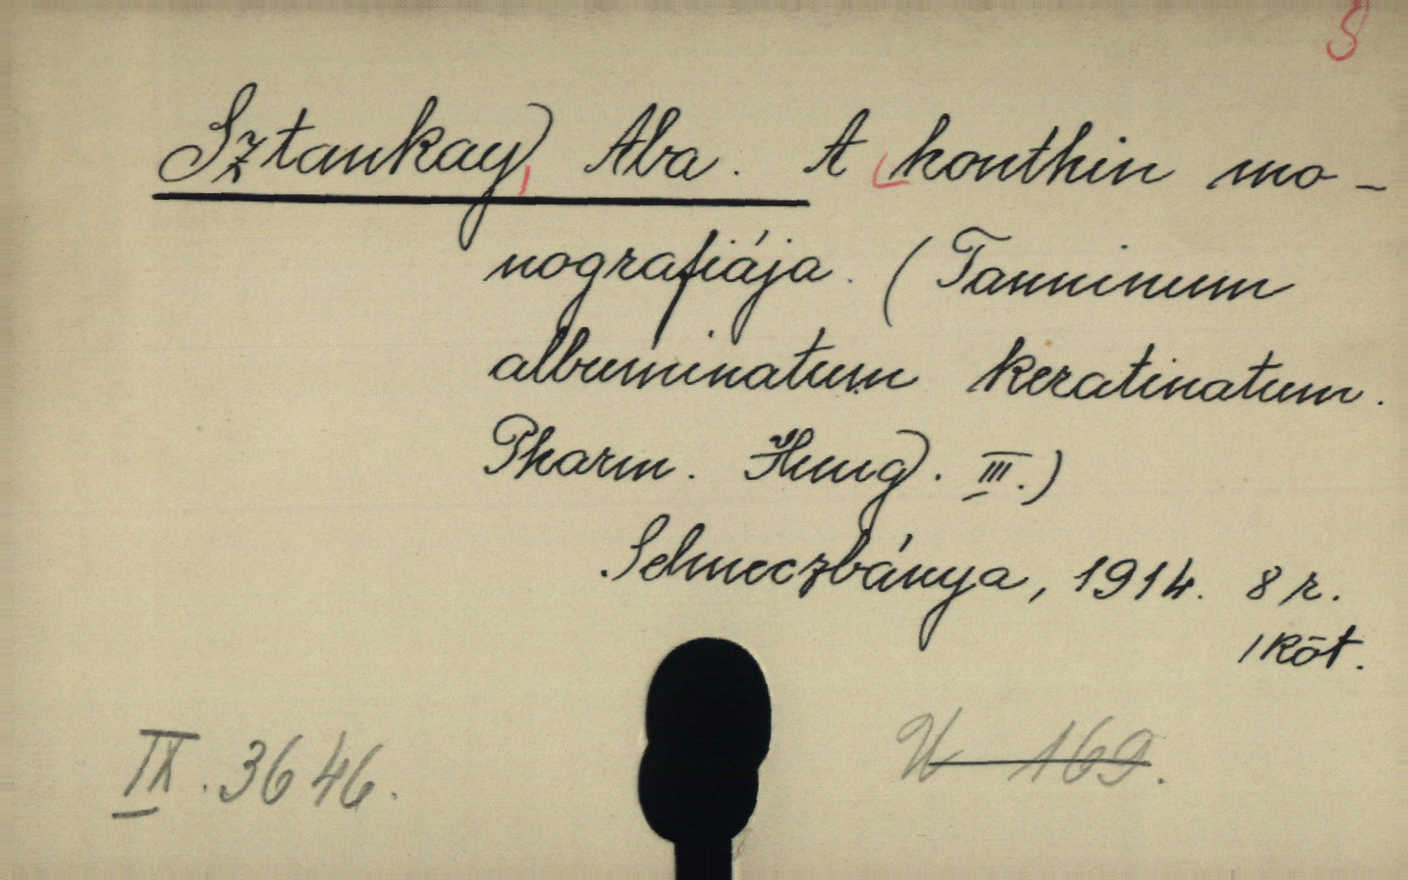 S
Sztankay, Aba. A honthin mo-
nografiája. (Tanninum
albuminatum keratinatum.
Pharm. Hung. III.)
Selmeczbánya, 1914. 8 r.
1 köt.
IX. 3646.
169.